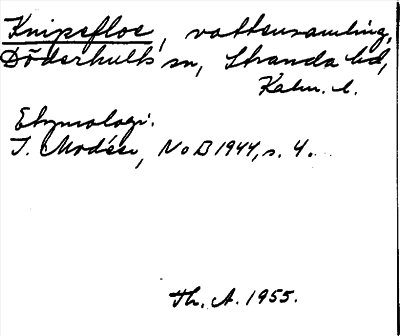 Knipefloe, vattensamling,
Döderhults sn, Stranda hd,
Kalm. l.
Etymologi.
I. Modéer, NoB 1944, s. 4.
Th. A. 1955.